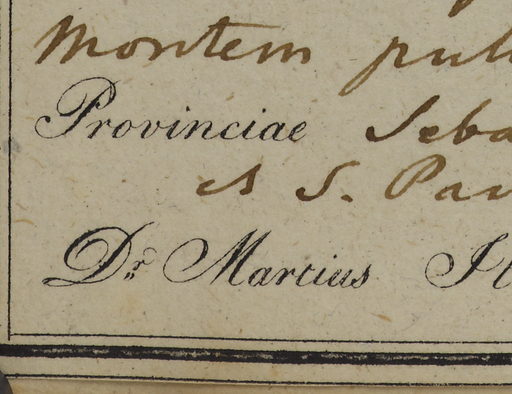 Montem pul
Provinciae Seba
et S. Pau
Dr. Martius It